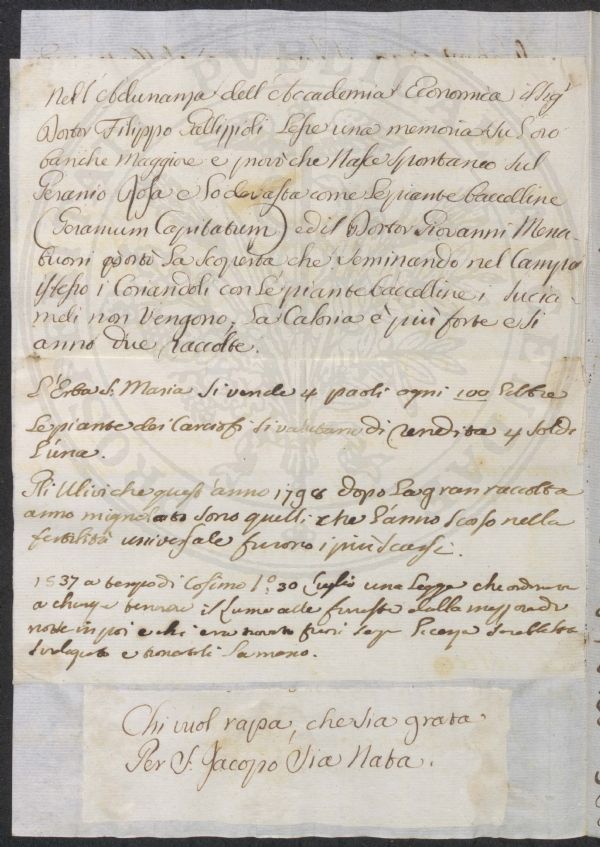 Nell'Adunanza dell'Accademia Economica il Sig.
Dottor Filippo Gallizzioli Lesse una memoria su L'oro
banche Maggiore e provò che Nasce spontaneo sul
Geranio Rosa e Lo devasta come Le piante baccelline
(Geranium Capitatum) ed il Dottor Giovanni Mena-
buoni portò La scoperta che seminando nel Campo
istesso i Coriandoli con Le piante baccelline i succia-
meli non Vengono, La Caloria è più forte e si
anno due raccolte.
L'Erba S. Maria si vende 4 paoli ogni 100 Libbre
Le piante dei Carciofi si valutano di rendita 4 Soldi
L'una.
Gli Ulivi che quest'anno 1798 dopo La gran raccolta
anno mignolato sono quelli che L'anno scorso nella
fertilità universale furono i più scarsi.
1537 a tempo di Cosimo I.º 30 Luglio una Legge che ordinava
a chiunque tenere il Lume alle finestre dalla mezza
notte in poi e chi era trovato fuori senza Licenza sarebbe
svaligiato e La mano.
Chi vuol rapa, che sia grata
Per S. Jacopo sia Nata.